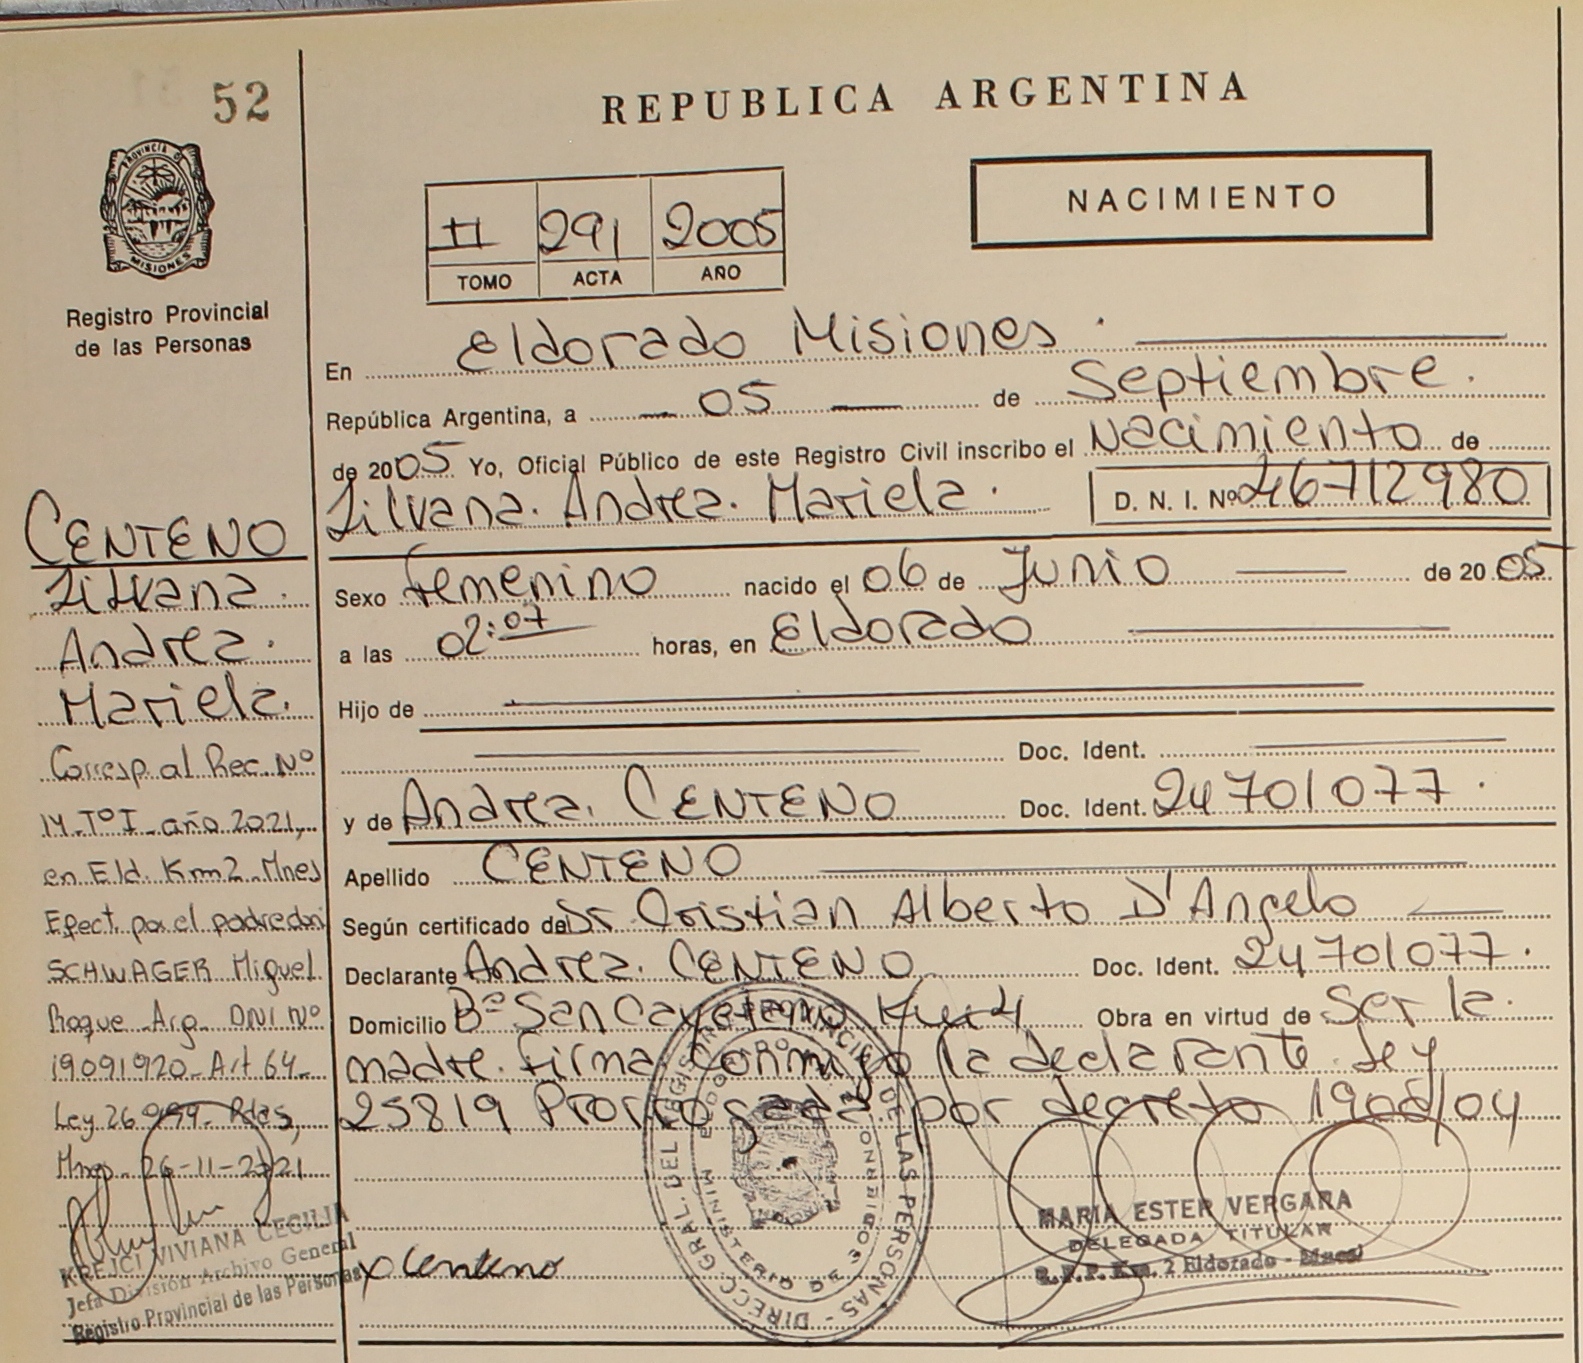 52
PROVINCIA DE
MISIONES
Registro Provincial
de las Personas
REPUBLICA ARGENTINA
II 291 2005
TOMO ACTA AÑO
NACIMIENTO
En Eldorado Misiones.
República Argentina, a 05 de Septiembre.
de 2005 Yo, Oficial Público de este Registro Civil inscribo el Nacimiento de
Silvana. Andrea. Mariela. D. N. I. Nº 46712980
Sexo femenino nacido el 06 de Junio de 2005
a las 02:07 horas, en Eldorado
Hijo de
Doc. Ident.
y de Andrea. CENTENO Doc. Ident. 24701077.
Apellido CENTENO
Según certificado de Dr Cristian Alberto D'Angelo
Declarante Andrea. CENTENO Doc. Ident. 24701077.
Domicilio Bº San Cayetano Km 4 Obra en virtud de Ser la
madre. firma conmigo la declarante. Ley
25819 Prorrogada por decreto 1906/04
CENTENO
Silvana.
Andrea.
Mariela.
Corresp. al Rec. Nº
14 Tº I año 2021,
en Eld. Km 2 Mnes
Efect. por el padre don
SCHWAGER Miguel
Roque Arg. DNI Nº
19091920 Art 64
Ley 26.994 Pdas,
26-11-2021
KREJCI VIVIANA CECILIA
Jefa División Archivo General
Registro Provincial de las Personas
x Centeno
DIRECC. GRAL. DEL REGISTRO PROVINCIAL DE LAS PERSONAS
MINISTERIO DE GOBIERNO
MARIA ESTER VERGARA
DELEGADA TITULAR
R.P.P. Km. 2 Eldorado - Mnes.